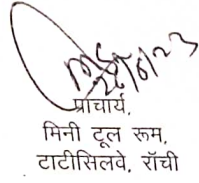 प्राचार्य,
मिनी टूल रूम,
टाटीसिलवे, राँची